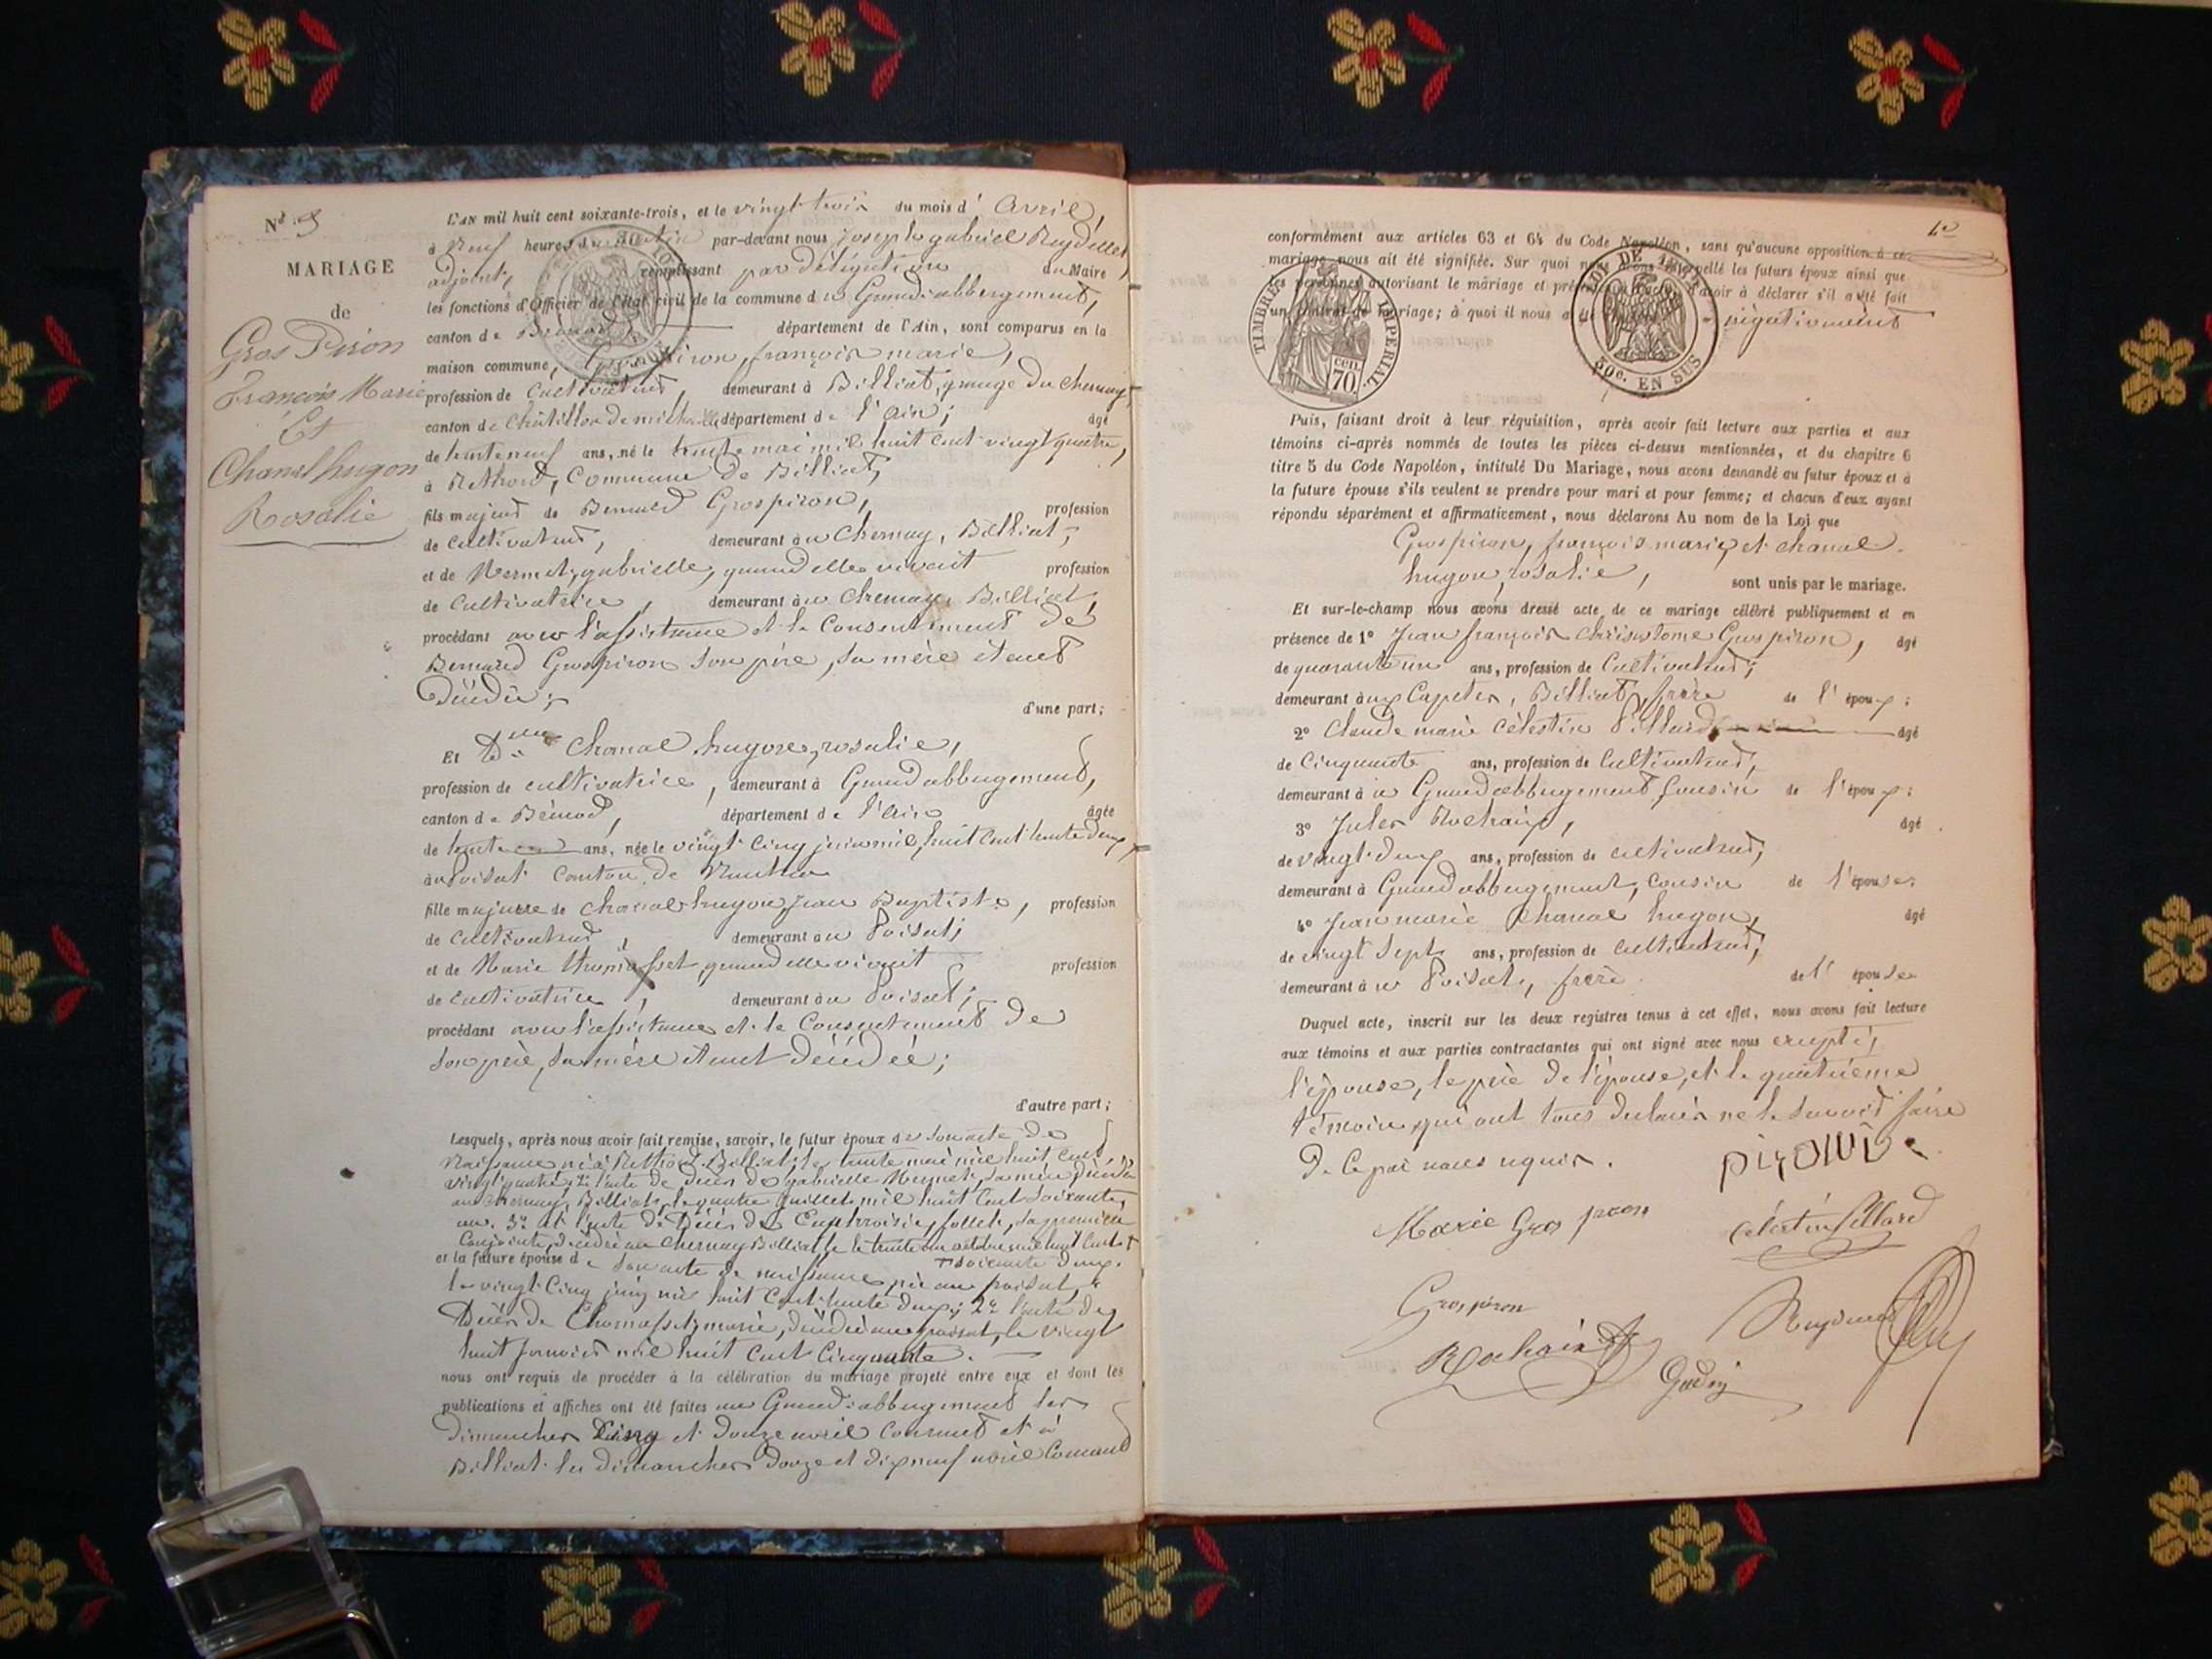 Nº 3
MARIAGE
de
Gros Piron
François Marie
Et
Chanal hugon
Rosalie
L'AN mil huit cent soixante-trois, et le vingt trois du mois d' avril,
à neuf heures du matin par-devant nous Joseph gabriel Reydellet
adjoint, remplissant par délégation du Maire
les fonctions d'Officier de l'état civil de la commune d u Grand-abbergement,
canton de Brénod département de l'Ain, sont comparus en la
maison commune, Grospiron, françois marie,
profession de Cultivateur, demeurant à Billiat, grange du Chernay,
canton de Châtillon de michaille département de l'ain; âgé
de trente neuf ans, né le trente mai mil huit cent vingt quatre,
à commune de Billiat,
fils majeur de Bernard Grospiron, profession
de cultivateur, demeurant au Chernay, Billiat,
et de Mermet, gabrielle, quand elle vivait profession
de Cultivatrice, demeurant au Chernay, Billiat,
procédant avec l'assistance et le Consentement dé
Bernard Grospiron son père, sa mère étant
Décédée;
d'une part;
Et Dlle Chanal hugon, rosalie,
profession de cultivatrice, demeurant à Grand abbergement,
canton de Brénod, département de l'ain âgée
de trente ans, née le vingt cinq juin mil huit cent trente deux,
au Poisat Canton de Nantua
fille majeure de Chanal-hugon Jean Baptiste, profession
de Cultivateur, demeurant au Poisat;
et de Marie thomasset quand elle vivait profession
de cultivatrice, demeurant au Poisat;
procédant avec l'assistance et le Consentement de
son père, sa mère étant décédée;
d'autre part;
Lesquels, après nous avoir fait remise, savoir, le futur époux de son acte de
Naissance né à Billiat, le trente mai mil huit cent
vingt quatre, 2º l'acte de décès de gabrielle Mermet, sa mère décédée
au Chernay, Billiat, le quatre Juillet mil huit Cent Soixante
un. 3º et l'acte de Décès de follet, sa première
Conjointe, décédée au Chernay Billiat, le trente un octobre mil huit Cent
et la future épouse de son acte de naissance née au poisat, soixante deux.
le vingt Cinq juin mil huit Cent trente deux; 2º l'acte de
Décès de Thomasset, marie, décédée au poisat, le vingt
huit Janvier mil huit Cent Cinquante.
nous ont requis de procéder à la célébration du mariage projeté entre eux et dont les
publications et affiches ont été faites au Grand-abbergement les
Dimanches Cinq et Douze avril Courant et à
Billiat les dimanches Douze et dix neuf avril Courant
conformément aux articles 63 et 64 du Code Napoléon, sans qu'aucune opposition à ce
mariage nous ait été signifiée. Sur quoi nous avons interpellé les futurs époux ainsi que
les personnes autorisant le mariage et d'avoir à déclarer s'il a été fait
un contrat de mariage; à quoi il nous a été négativement
TIMBRE IMPERIAL
70 cen.
LOI DE
50c. EN SUS
Puis, faisant droit à leur réquisition, après avoir fait lecture aux parties et aux
témoins ci-après nommés de toutes les pièces ci-dessus mentionnées, et du chapitre 6
titre 5 du Code Napoléon, intitulé Du Mariage, nous avons demandé au futur époux et à
la future épouse s'ils veulent se prendre pour mari et pour femme; et chacun d'eux ayant
répondu séparément et affirmativement, nous déclarons Au nom de la Loi que
Grospiron, françois marie, et chanal-
hugon, rosalie, sont unis par le mariage.
Et sur-le-champ nous avons dressé acte de ce mariage célébré publiquement et en
présence de 1º Jean françois Chrisostome Grospiron, âgé
de quarante un ans, profession de Cultivateur;
demeurant aux Capetes, Billiat, frère de l'époux;
2º Claude marie Célestin Pillard âgé
de Cinquante ans, profession de Cultivateur,
demeurant à u Grand abbergement, Cousin de l'époux;
3º Jules Rochaix, âgé
de vingt-deux ans, profession de cultivateur,
demeurant à Grand abbergement, cousin de l'épouse;
4º Jean marie Chanal hugon, âgé
de vingt sept ans, profession de cultivateur,
demeurant à u Poisat, frère de l' épouse
Duquel acte, inscrit sur les deux registres tenus à cet effet, nous avons fait lecture
aux témoins et aux parties contractantes qui ont signé avec nous excepté,
l'épouse, le père de l'épouse, et le quatrième
témoin, qui ont tous déclarés ne le savoir faire
De ce par nous requis.
Marie Gros piron
célestin Pillard
Grospiron
Rochaix